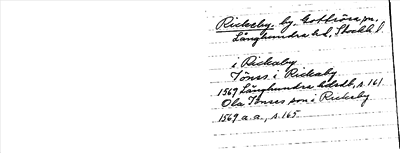 Rickeby, by, Gottröra sn,
Långhundra hd, Stockh. l.
i Rickaby
Jönss i Rickaby
1569 Långhundra hdsdb, s. 161
Ola Jönses son i Rickeby
1569 a.a., s. 165